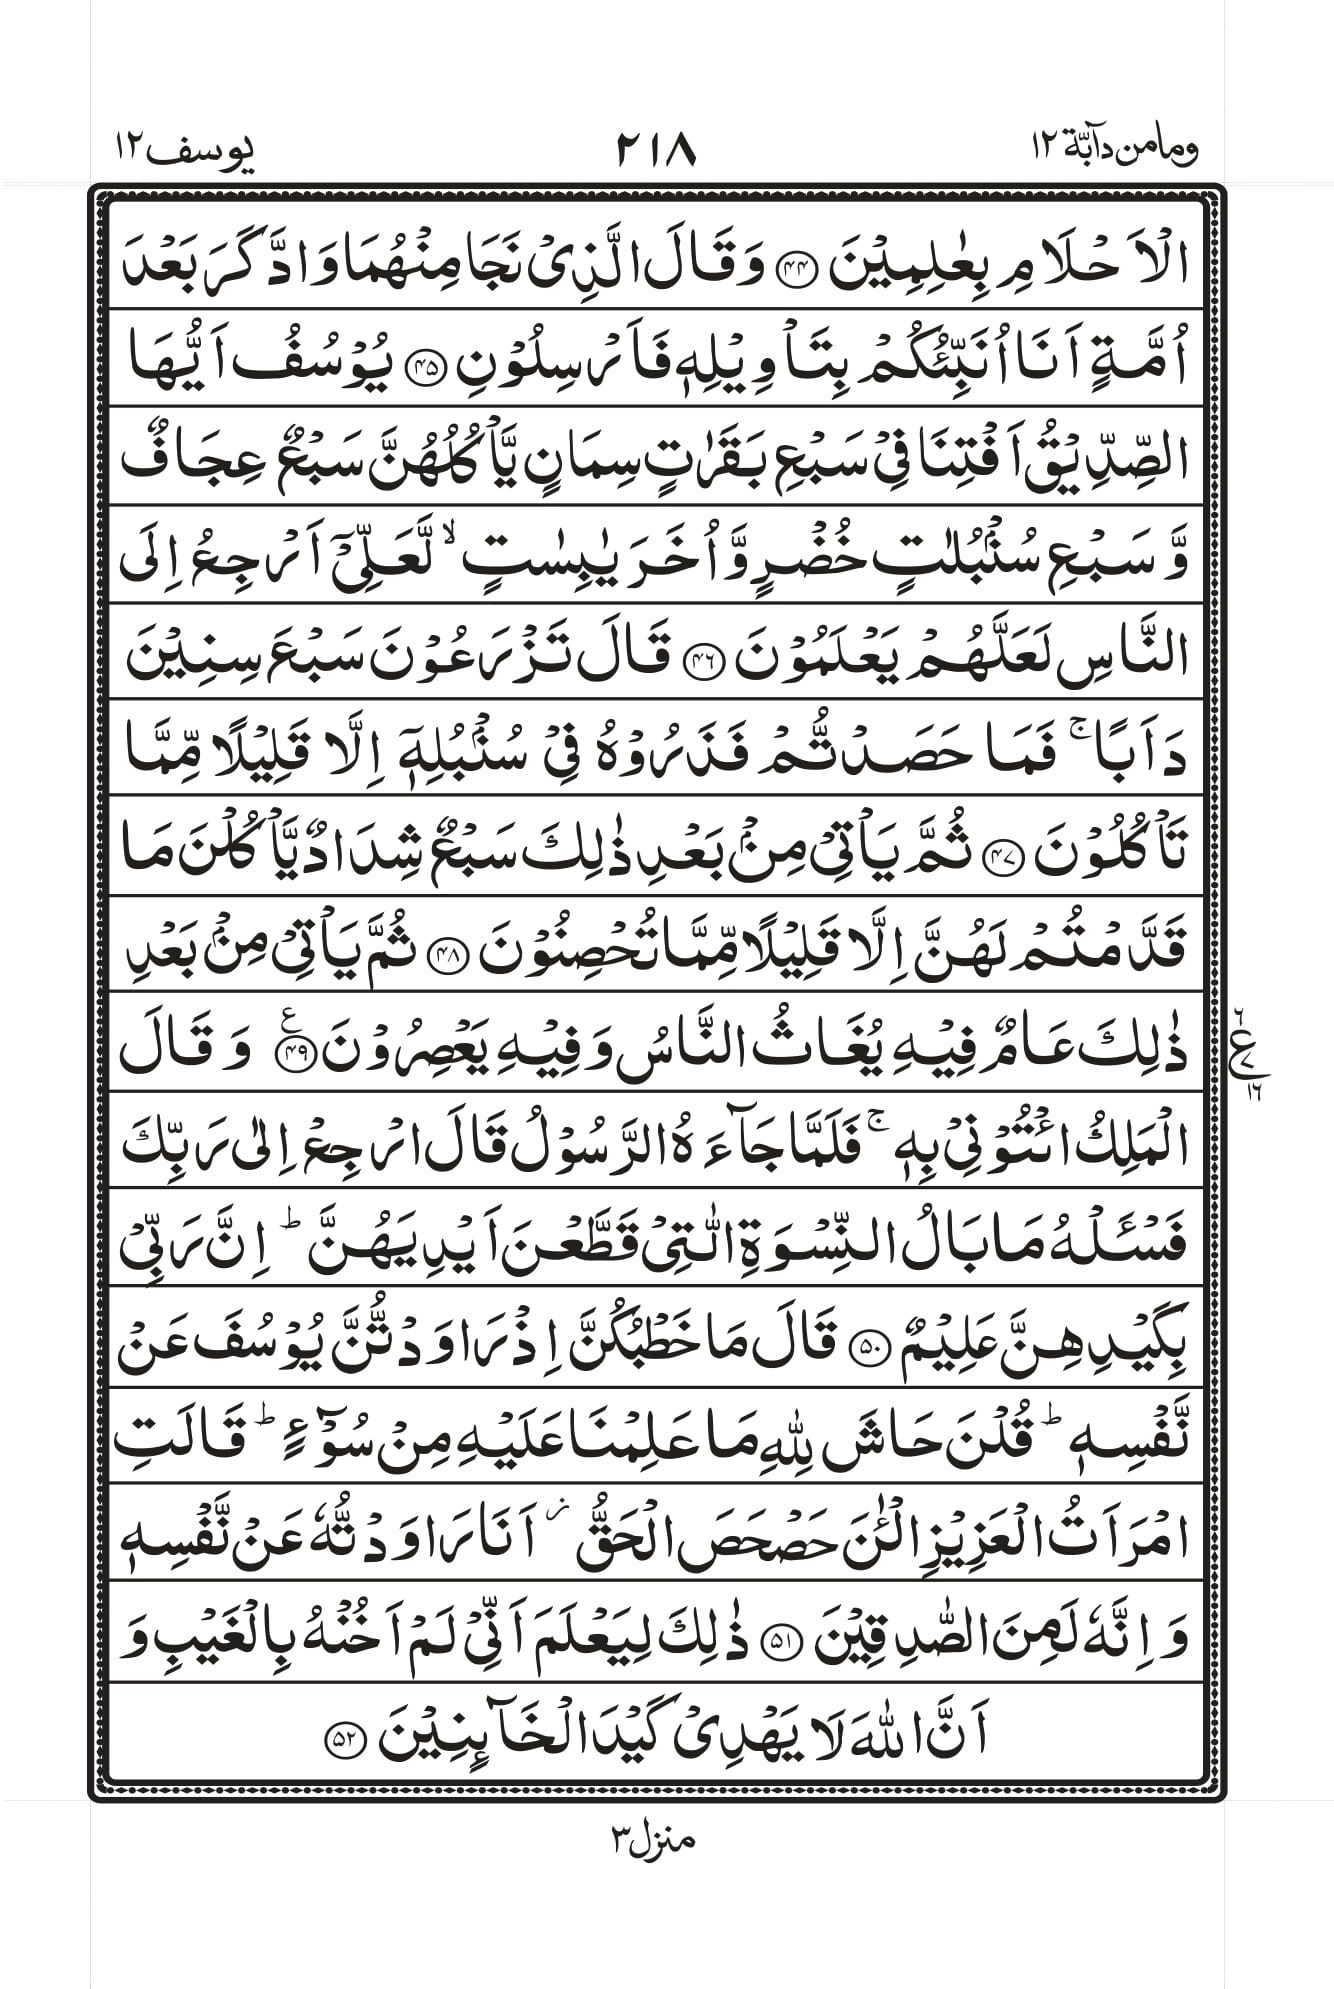 ومامن دآبة ١٢
٢١٨
يوسف ١٢
الۡاَحۡلَامِ بِعٰلِمِيۡنَ ﴿۴۴﴾ وَقَالَ الَّذِىۡ نَجَا مِنۡهُمَا وَادَّكَرَ بَعۡدَ
اُمَّةٍ اَنَا اُنَبِّئُكُمۡ بِتَاۡوِيۡلِهٖ فَاَرۡسِلُوۡنِ ﴿۴۵﴾ يُوۡسُفُ اَيُّهَا
الصِّدِّيۡقُ اَفۡتِنَا فِىۡ سَبۡعِ بَقَرٰتٍ سِمَانٍ يَّاۡكُلُهُنَّ سَبۡعٌ عِجَافٌ
وَّ سَبۡعِ سُنۡۢبُلٰتٍ خُضۡرٍ وَّاُخَرَ يٰبِسٰتٍ ۙ لَّعَلِّىۡۤ اَرۡجِعُ اِلَى
النَّاسِ لَعَلَّهُمۡ يَعۡلَمُوۡنَ ﴿۴۶﴾ قَالَ تَزۡرَعُوۡنَ سَبۡعَ سِنِيۡنَ
دَاَبًا ۚ فَمَا حَصَدْتُّمۡ فَذَرُوۡهُ فِىۡ سُنۡۢبُلِهٖۤ اِلَّا قَلِيۡلًا مِّمَّا
تَاۡكُلُوۡنَ ﴿۴۷﴾ ثُمَّ يَاۡتِىۡ مِنۡۢ بَعۡدِ ذٰلِكَ سَبۡعٌ شِدَادٌ يَّاۡكُلۡنَ مَا
قَدَّمۡتُمۡ لَهُنَّ اِلَّا قَلِيۡلًا مِّمَّا تُحۡصِنُوۡنَ ﴿۴۸﴾ ثُمَّ يَاۡتِىۡ مِنۡۢ بَعۡدِ
ذٰلِكَ عَامٌ فِيۡهِ يُغَاثُ النَّاسُ وَفِيۡهِ يَعۡصِرُوۡنَ ﴿۴۹﴾ ع وَ قَالَ
٦ ع ٧ ١٦
الۡمَلِكُ ائۡتُوۡنِىۡ بِهٖ ۚ فَلَمَّا جَآءَهُ الرَّسُوۡلُ قَالَ ارۡجِعۡ اِلٰى رَبِّكَ
فَسۡـَٔلۡهُ مَا بَالُ النِّسۡوَةِ الّٰتِىۡ قَطَّعۡنَ اَيۡدِيَهُنَّ ؕ اِنَّ رَبِّىۡ
بِكَيۡدِهِنَّ عَلِيۡمٌ ﴿۵۰﴾ قَالَ مَا خَطۡبُكُنَّ اِذۡ رَاوَدْتُّنَّ يُوۡسُفَ عَنۡ
نَّفۡسِهٖ ؕ قُلۡنَ حَاشَ لِلّٰهِ مَا عَلِمۡنَا عَلَيۡهِ مِنۡ سُوۡٓءٍ ؕ قَالَتِ
امۡرَاَتُ الۡعَزِيۡزِ الۡـٰٔنَ حَصۡحَصَ الۡحَقُّ ۫ اَنَا رَاوَدْتُّهٗ عَنۡ نَّفۡسِهٖ
وَ اِنَّهٗ لَمِنَ الصّٰدِقِيۡنَ ﴿۵۱﴾ ذٰلِكَ لِيَعۡلَمَ اَنِّىۡ لَمۡ اَخُنۡهُ بِالۡغَيۡبِ وَ
اَنَّ اللّٰهَ لَا يَهۡدِىۡ كَيۡدَ الۡخَآئِنِيۡنَ ﴿۵۲﴾
منزل ٣